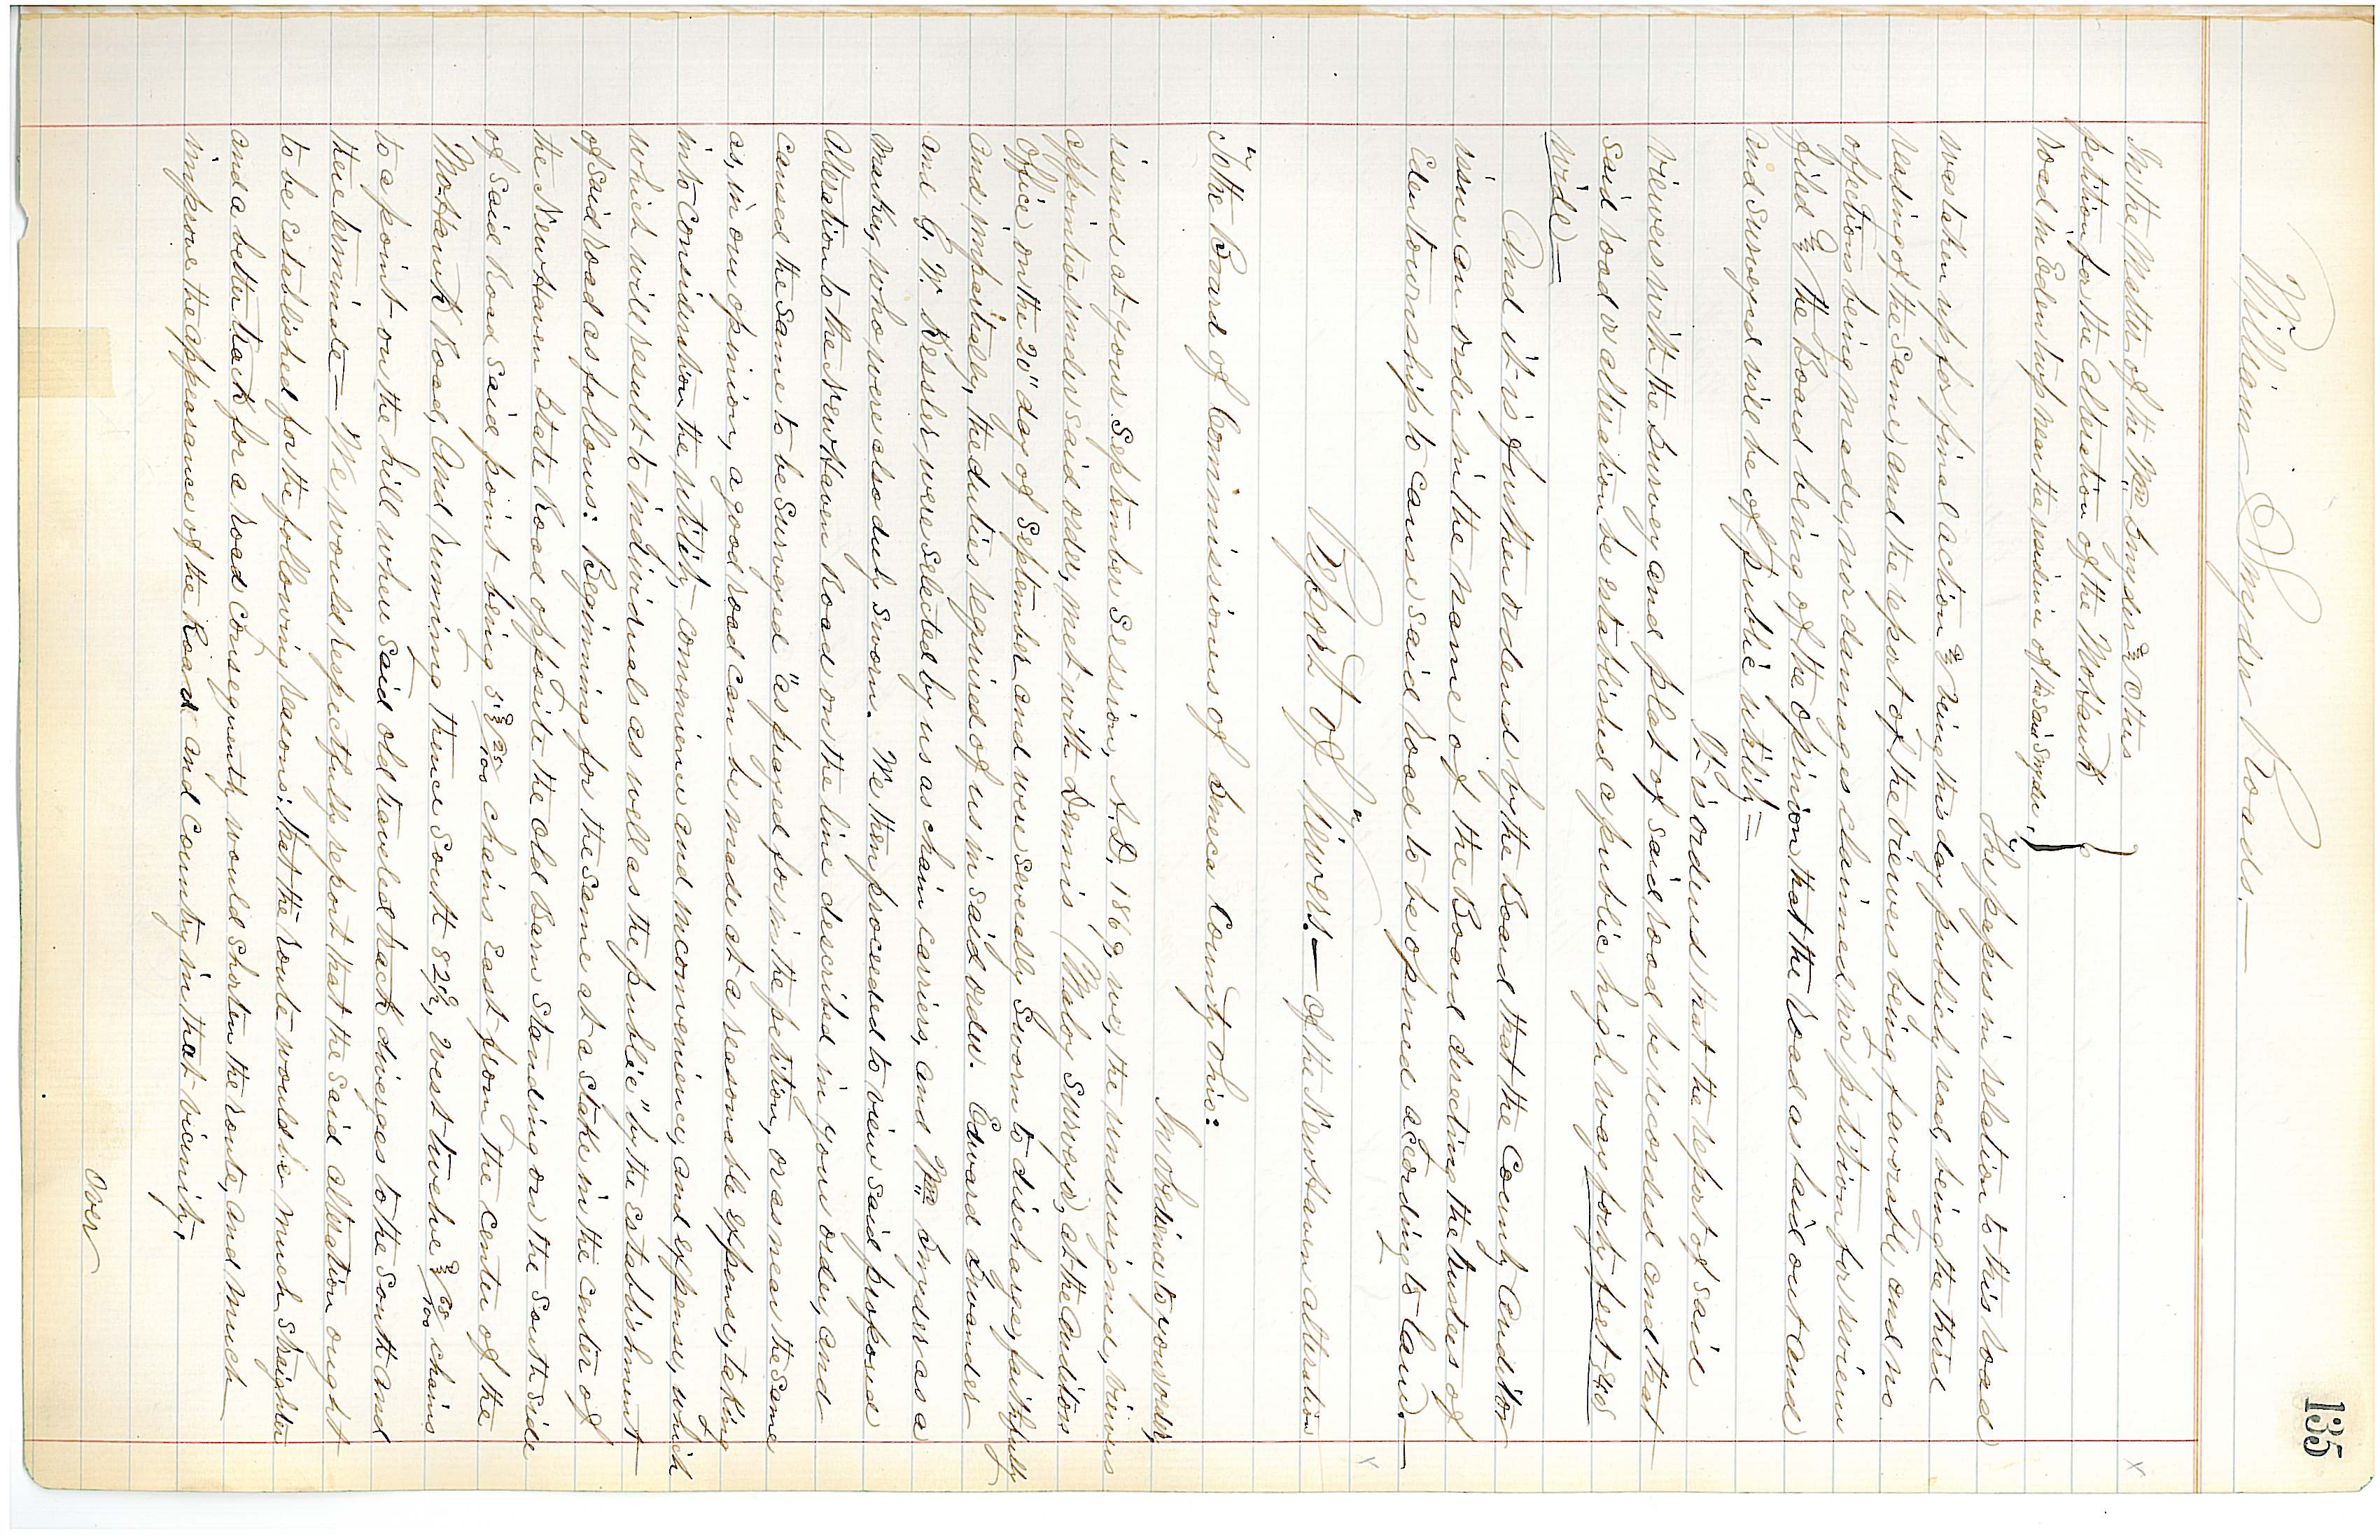 135
William Snyder Road.—
In the Matter of the Wm Snyder & others
petition for the alteration of the Mohawk
road in Eden twp near the residence of the said Snyder.
The papers in relation to this road
was taken up for final action & being this day publicly read, being the third
reading of the same, and the report of the viewers being favorable, and no
objections being made, nor damages claimed nor petition for review
filed & the Board being of the opinion that the road as laid out and
and surveyed will be of public utility=
It is ordered that the report of said
viewers with the survey and plat of said road be recorded and that
said road or alteration be established a public high way forty feet 40
wide=
And it is further ordered by the Board that the County Auditor
issue an order in the name of the Board directing the trustees of
Eden township to cause said road to be opened according to law.—
Report of Viewers.— of the New Haven alteration
"To the Board of Commissioners of Seneca County Ohio:
In obedience to your order,
issued at your September Session, A.D. 1869, we, the undersigned, viewers
appointed under said order, met with Dennis Maloy Surveyor, at the Auditors
Office, on the 20" day of September and were severally sworn to discharge, faithfully
and impartially, the duties required of us in said order. Edward
and G. W. Kessler were selected by us as chain carriers, and Wm Snyder as a
marker, who were also duly sworn. We then proceeded to view said proposed
Alteration to the New Haven Road on the line described in your order, and
caused the same to be surveyed "as prayed for in the petition, or as near the same
as, in our opinion, a good road can be made at a reasonable expense, taking
into consideration the utility, convenience and inconveniency, and expense, which
which will result to individuals as well as the public" by the establishment
of said road as follows: Beginning for the same at a stake in the center of
the New Haven State Road opposite the old Barn standing on the South side
of said Road said point being 51 & 25/100 chains East from the center of the
Mohawk Road, And running thence South 82½, West twelve & 65/100 chains
to a point on the hill where said old traveled track diverges to the South and
there terminate— We would respectfully report that the said alteration ought
to be Established for the following reasons: that the route would be much straighter
and a better track for a road consequently would shorten the route, and much
improve the appearance of the Road and County in that vicinity.
Over